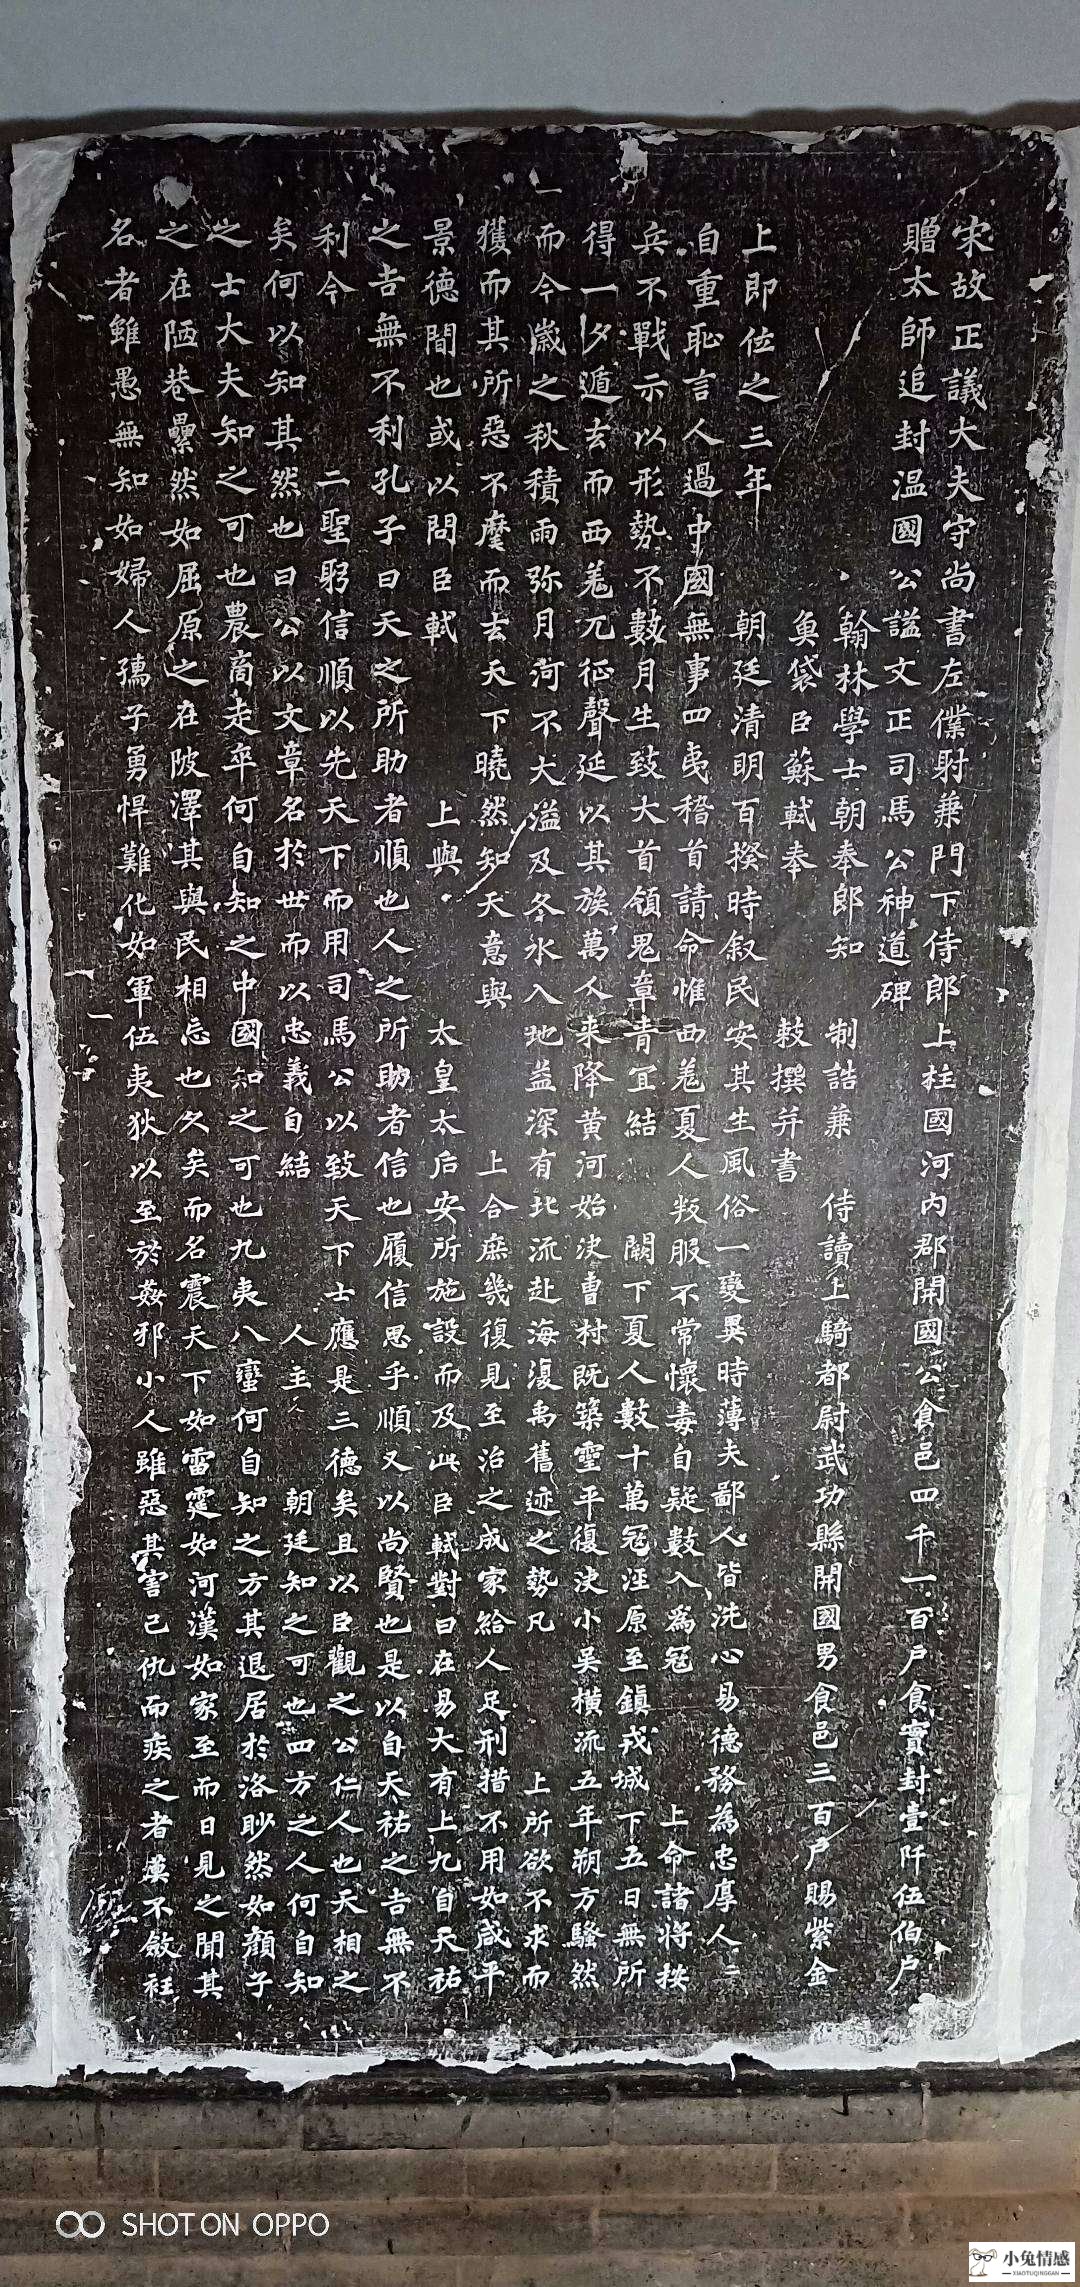 宋故正議大夫守尚書左僕射兼門下侍郎上柱國河內郡開國公食邑四千一百戶食實封壹阡伍伯戶
贈太師追封温國公謚文正司馬公神道碑
翰林學士朝奉郎知 制誥兼 侍讀上騎都尉武功縣開國男食邑三百戶賜紫金
魚袋臣蘇軾奉 敕撰并書
上即位之三年 朝廷清明百揆時叙民安其生風俗一變異時薄夫鄙人皆洗心易德務為忠厚人人
自重恥言人過中國無事四夷稽首請命惟西羌夏人叛服不常懷毒自疑數入為寇 上命諸將按
兵不戰示以形勢不數月生致大首領鬼章青宜結 闕下夏人數十萬寇涇原至鎮戎城下五日無所
得一夕遁去而西羌兀征聲延以其族萬人来降黄河始決曹村既築靈平復決小吴横流五年朔方騷然
而今歲之秋積雨弥月河不大溢及冬水入地益深有北流赴海復禹舊迹之勢凡 上所欲不求而
獲而其所惡不麾而去天下曉然知天意與 上合庶幾復見至治之成家給人足刑措不用如咸平
景德間也或以問臣軾 上與 太皇太后安所施設而及此臣軾對曰在易大有上九自天祐
之吉無不利孔子曰天之所助者順也人之所助者信也履信思乎順又以尚賢也是以自天祐之吉無不
利今 二聖躬信順以先天下而用司馬公以致天下士應是三德矣且以臣觀之公仁人也天相之
矣何以知其然也曰公以文章名於世而以忠義自結 人主 朝廷知之可也四方之人何自知
之士大夫知之可也農商走卒何自知之中國知之可也九夷八蠻何自知之方其退居於洛眇然如顏子
之在陋巷纍然如屈原之在陂澤其與民相忘也久矣而名震天下如雷霆如河漢如家至而日見之聞其
名者雖愚無知如婦人孺子勇悍難化如軍伍夷狄以至於姦邪小人雖惡其害己仇而疾之者莫不斂衽
SHOT ON OPPO
小兔情感
XIAOTUQINGGAN